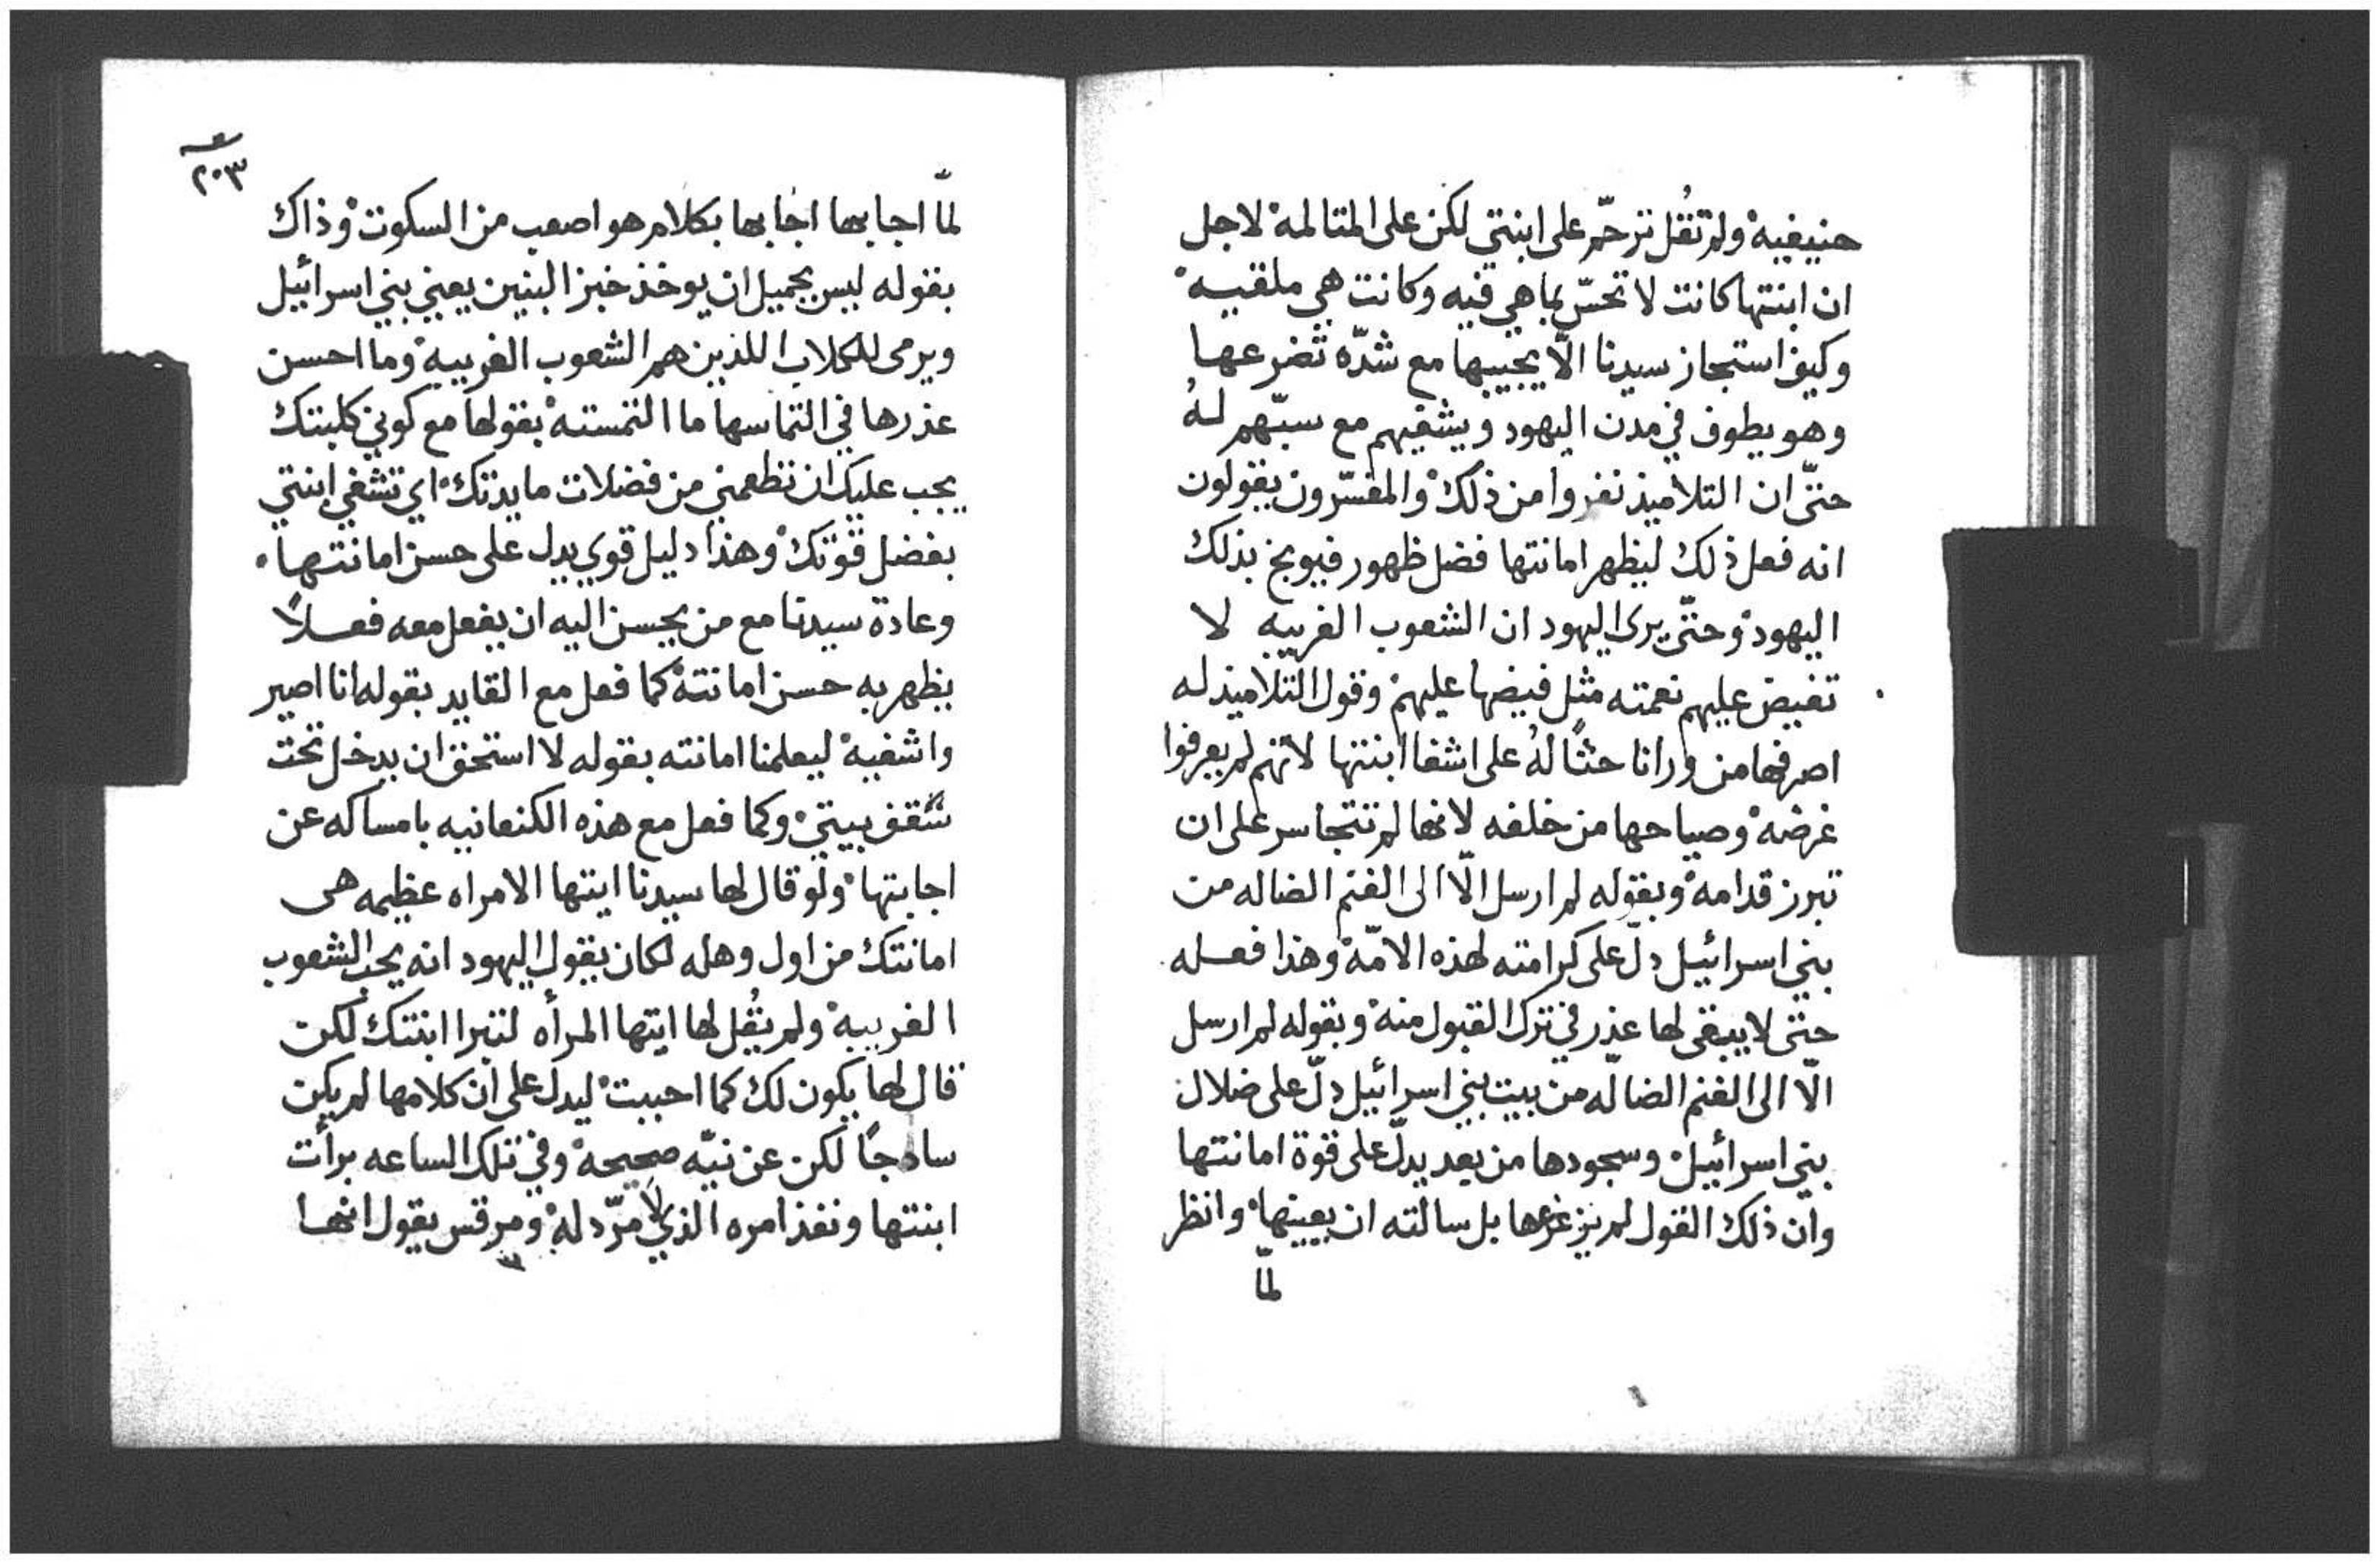 حنيفيه ولم تقُل ترحّم على ابنتي لكن على المتالمه لاجل
ان ابنتها كانت لا تحسّ بما هي فيه وكانت هي ملقيه
وكيف استجاز سيدنا الّا يجيبها مع شدّه تضرعها
وهو يطوف في مدن اليهود ويشفيهم مع سبّهم لهُ
حتّى ان التلاميذ نفروا من ذلك والمفسّرون يقولون
انه فعل ذلك ليظهر امانتها فضل ظهور فيوبخ بذلك
اليهود وحتّى يرى اليهود ان الشعوب الغريبه لا
تفيض عليهم نعمته مثل فيضها عليهم وقول التلاميذ له
اصرفها من ورانا حثًا لهُ على اشفا ابنتها لانهم لم يعرفوا
غرضه وصياحها من خلفه لانها لم تتجاسر على ان
تبرز قدامه وبقوله لم ارسل الّا الى الغنم الضاله من
بني اسرائيل دلّ على كرامته لهذه الامّه وهذا فعله
حتى لا يبقى لها عذر في ترك القبول منه وبقوله لم ارسل
الّا الى الغنم الضالّه من بيت بني اسرائيل دلّ على ضلال
بني اسرائيل وسجودها من بعد يدلّ على قوة امانتها
وان ذلك القول لم يزعزعها بل سالته ان يعينها وانظر
لمّا
٢٠٣
لمّا اجابها اجابها بكلام هو اصعب من السكوت وذاك
بقوله ليس بجميل ان يوخذ خبز البنين يعني بني اسرائيل
ويرمى للكلاب اللذين هم الشعوب الغريبه وما احسن
عذرها في التماسها ما التمسته بقولها مع كوني كلبتك
يجب عليك ان تطعمني من فضلات مايدتك اي تشفي ابنتي
بفضل قوّتك وهذا دليل قوي يدل على حسن امانتها
وعادة سيدنا مع من يحسن اليه ان يفعل معه فعلاً
يظهر به حسن امانته كما فعل مع القايد بقوله انا اصير
واشفيه ليعلمنا امانته بقوله لا استحق ان يدخل تحت
سقف بيتي وكما فعل مع هذه الكنعانيه بامساكه عن
اجابتها ولو قال لها سيدنا ايتها الامراه عظيمه هى
امانتك من اول وهله لكان يقول اليهود انه يحب الشعوب
الغريبه ولم يقُل لها ايتها المرأه لتبرا ابنتك لكن
قال لها يكون لك كما احببت ليدل على ان كلامها لم يكن
سادجًا لكن عن نيّه صحيحه وفي تلك الساعه برأت
ابنتها ونفذ امره الذي لا مرّد له ومرقس يقول انها